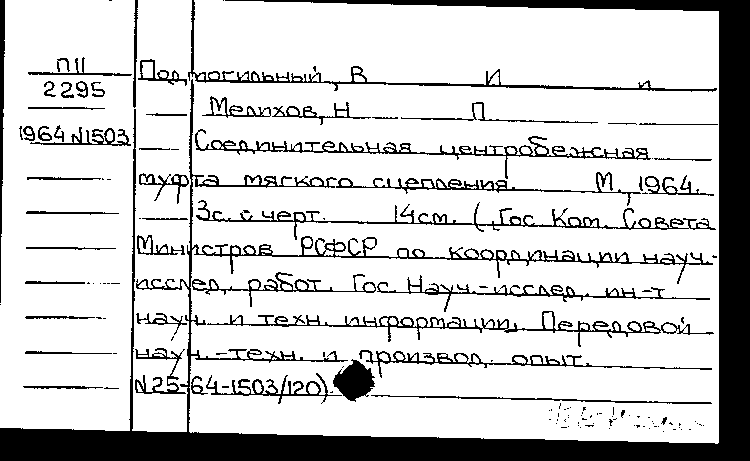 П11 Подмогильный, В И и
2295 Мелихов, Н П
1964 N1503 Соединительная центробежная
муфта мягкого сцепления. М., 1964.
3с. с черт. 14см. (Гос. Ком. Совета
Министров РСФСР по координации науч.-
исслед. работ. Гос. Науч.-исслед. ин-т
науч. и техн. информации. Передовой
науч.-техн. и производ. опыт.
N25-64-1503/120)